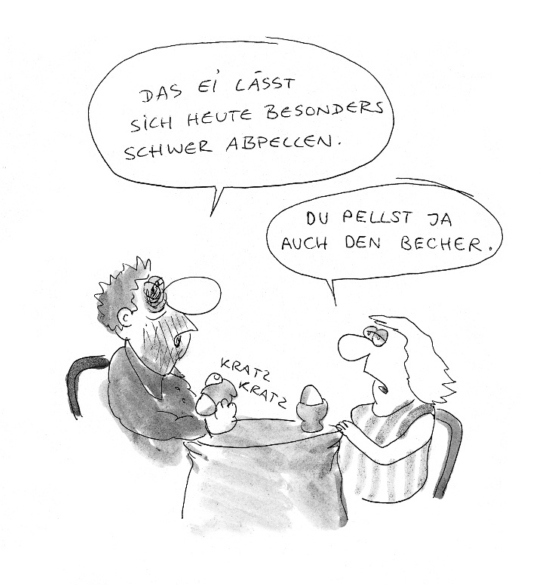 DAS EI LÄSST
SICH HEUTE BESONDERS
SCHWER ABPELLEN.
DU PELLST JA
AUCH DEN BECHER.
KRATZ
KRATZ